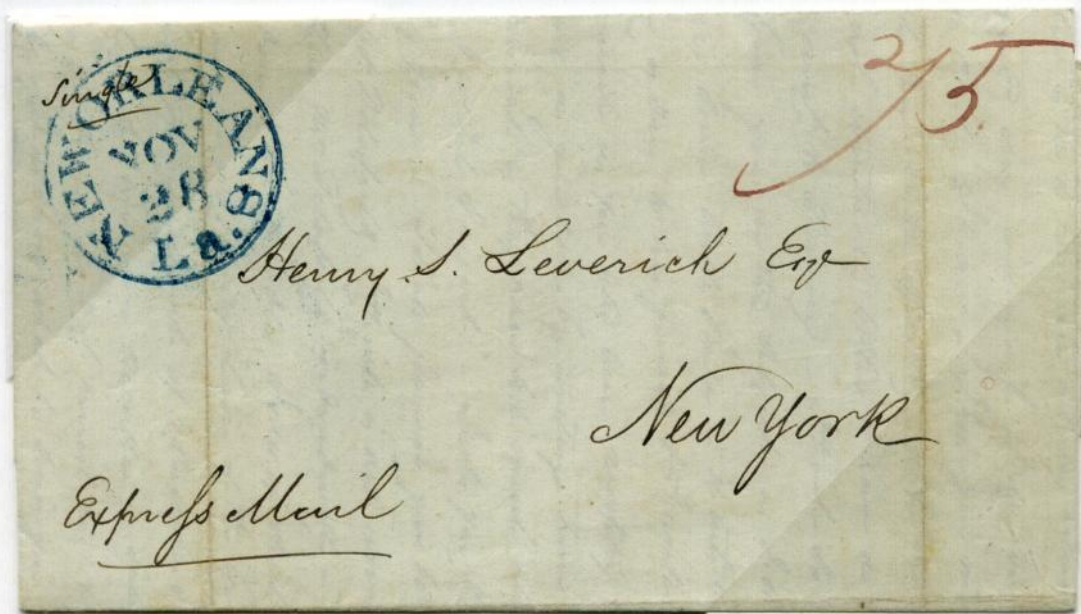 Single
NEW ORLEANS
NOV
28
La.
75
Henry S. Leverich Esqr
New York
Express Mail